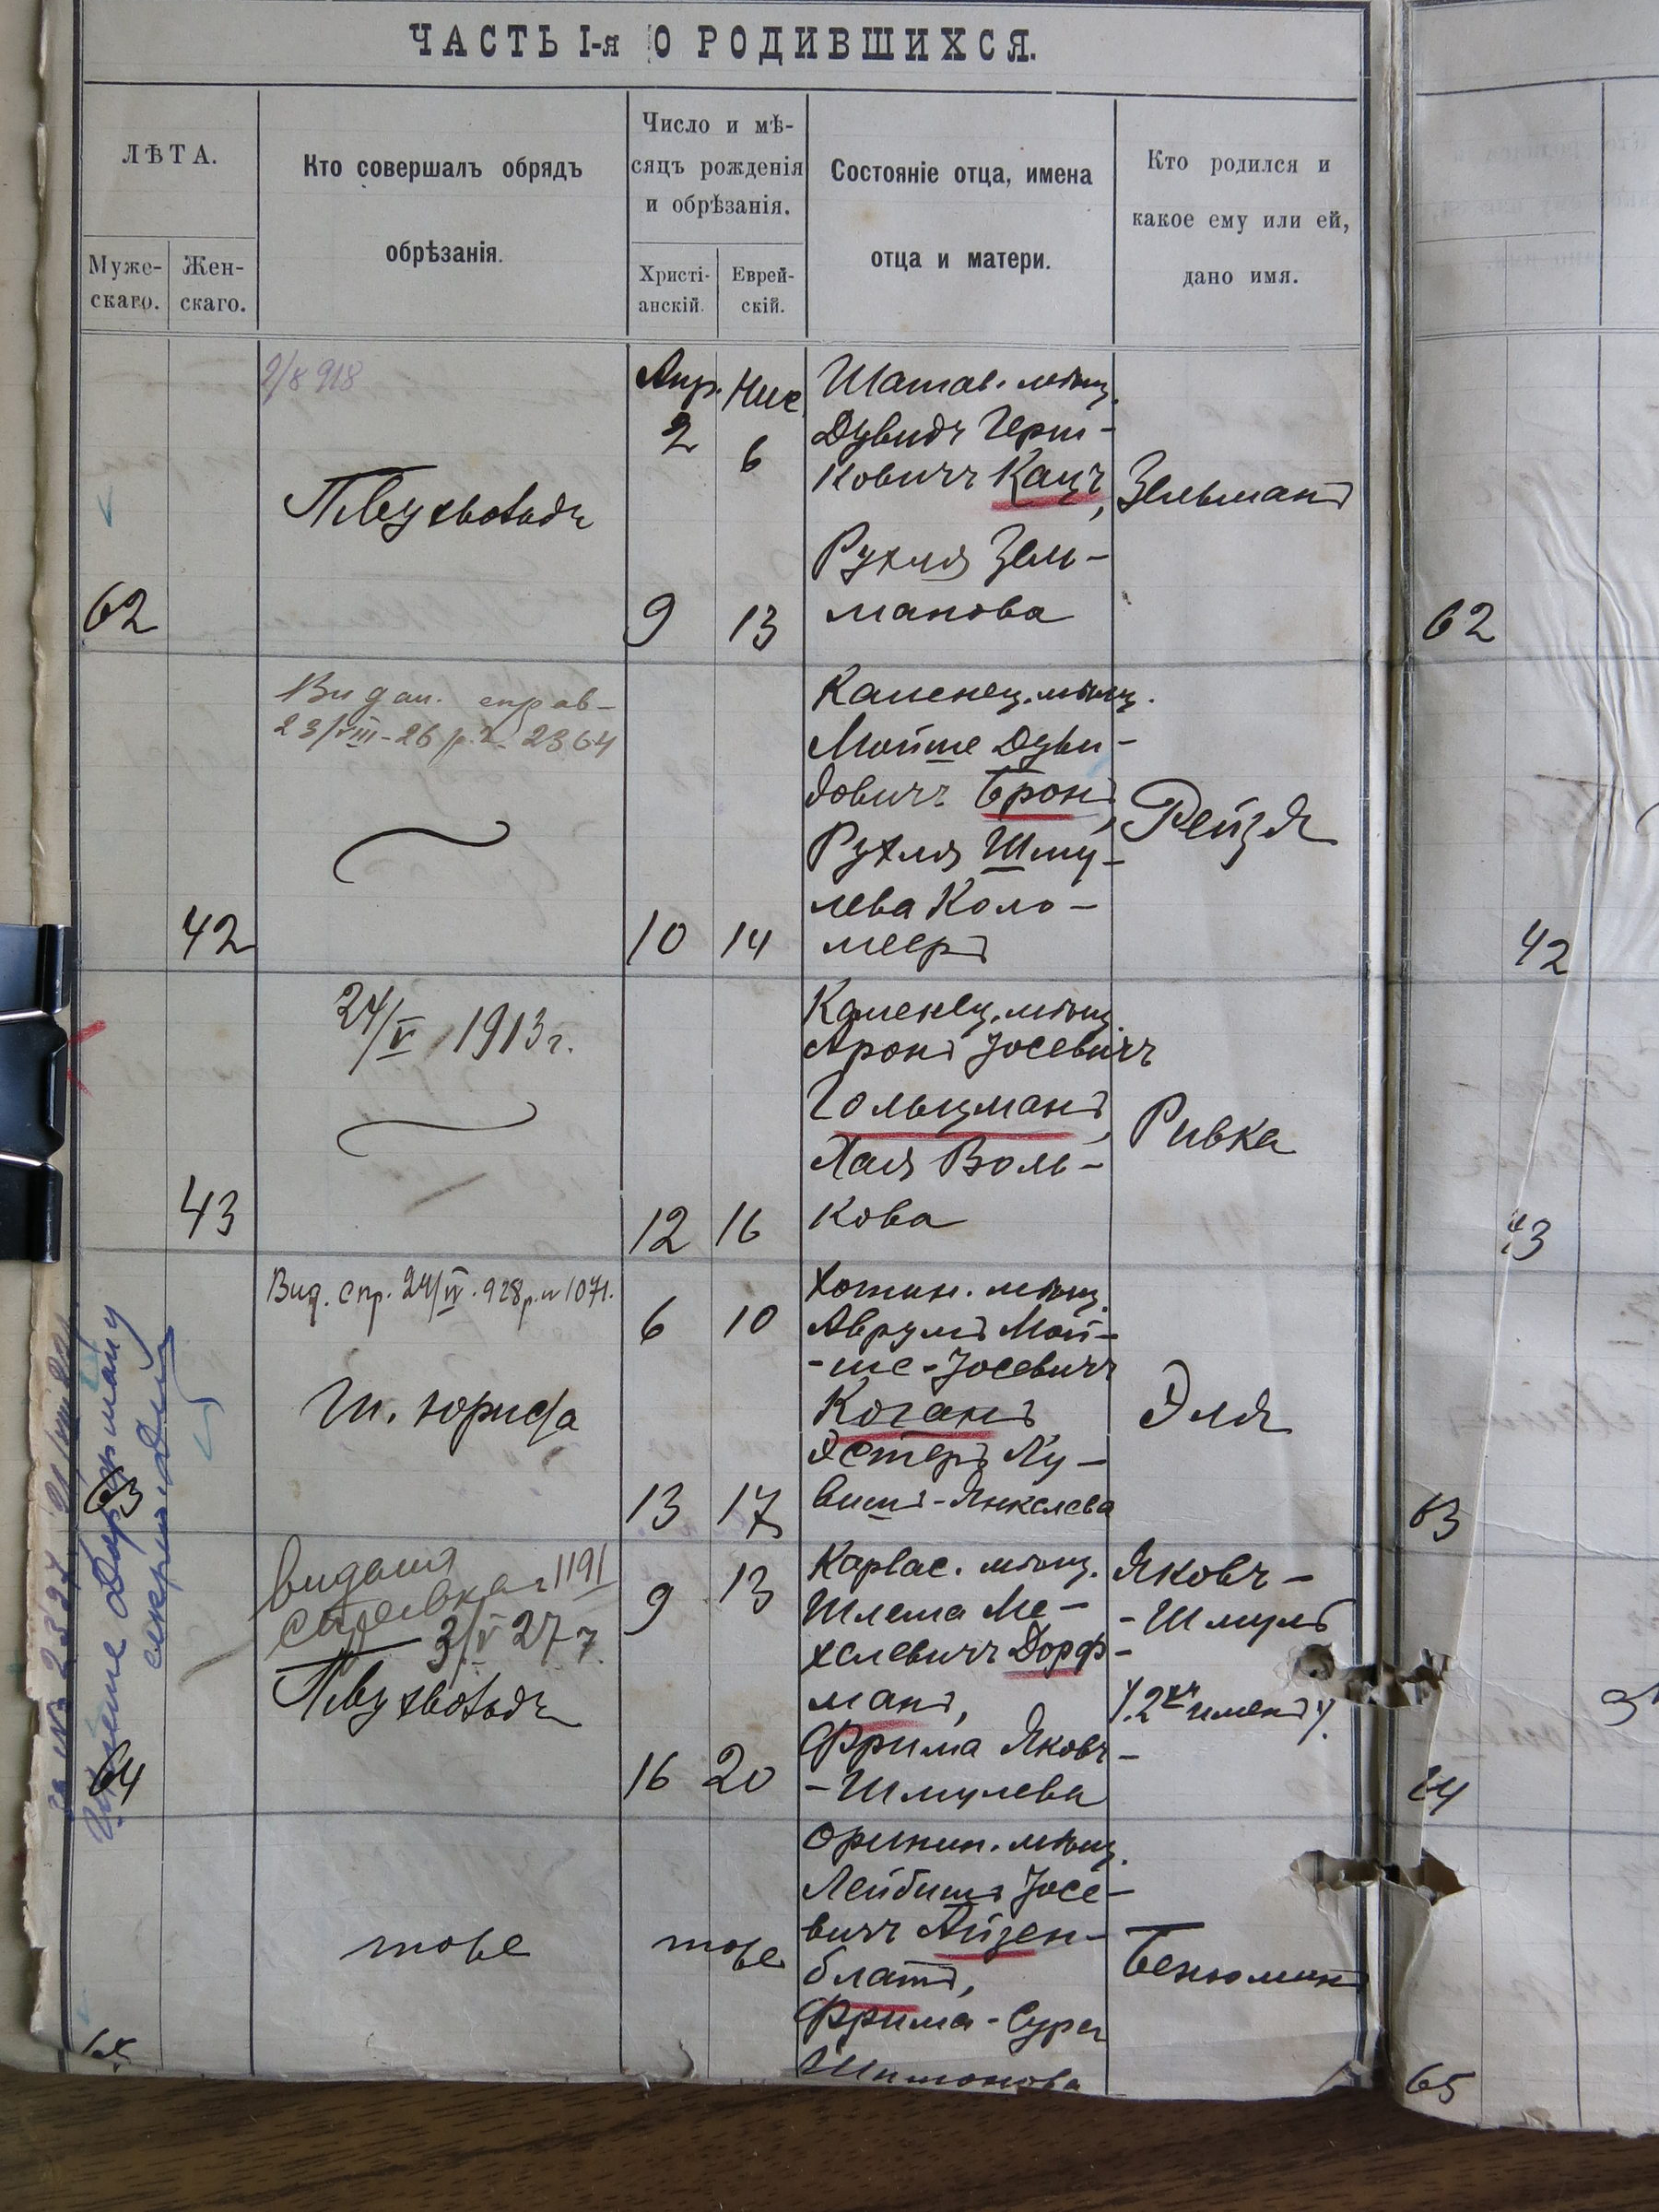 ЧАСТЬ I-я О РОДИВШИХСЯ.
ЛѢТА.
Муже-
скаго.
Жен-
скаго.
Кто совершалъ обрядъ
обрѣзанія.
Число и мѣ-
сяцъ рожденія
и обрѣзанія.
Христі-
анскій.
Еврей-
скій.
Состояніе отца, имена
отца и матери.
Кто родился и
какое ему или ей,
дано имя.
2/8 918
62
Апр. Нис.
2 6
9 13
Шатав. мѣщ.
Дувидъ Герш-
ковичъ Кацъ,
Рухля Зель-
манова
Зельманъ
62
Видан. справ-
23/VIII-26 р. 2364
42
10 14
Каменец. мѣщ.
Мойше Дуви-
довичъ Бронъ,
Рухля Шму-
лева Коло-
мееръ
Рейзя
42
24/V 1913 г.
43
12 16
Каменец. мѣщ.
Аронъ Іосевичъ
Гольцманъ,
Хая Воль-
кова
Ривка
43
Вид. спр. 24/IV. 928 р. № 1071.
Ш. Юрифа
63
6 10
13 17
Хотин. мѣщ.
Аврумъ Мой-
-ше-Іосевичъ
Коганъ
Эстеръ Ку-
вишъ-Янкелева
Эля
63
видана
справка 1191
3/V 27 г.
64
9 13
16 20
Карвас. мѣщ.
Шлема Ме-
хелевичъ Дорф-
манъ,
Фрима Яковъ-
-Шмулева
Яковъ-
-Шмуль
/. 2хъ именъ /.
64
тоже
тоже
65
Оринин. мѣщ.
Лейбишъ Іосе-
вичъ Айзен-
блатъ,
Фрима-Сура
Шимонова
Бенюминъ
65